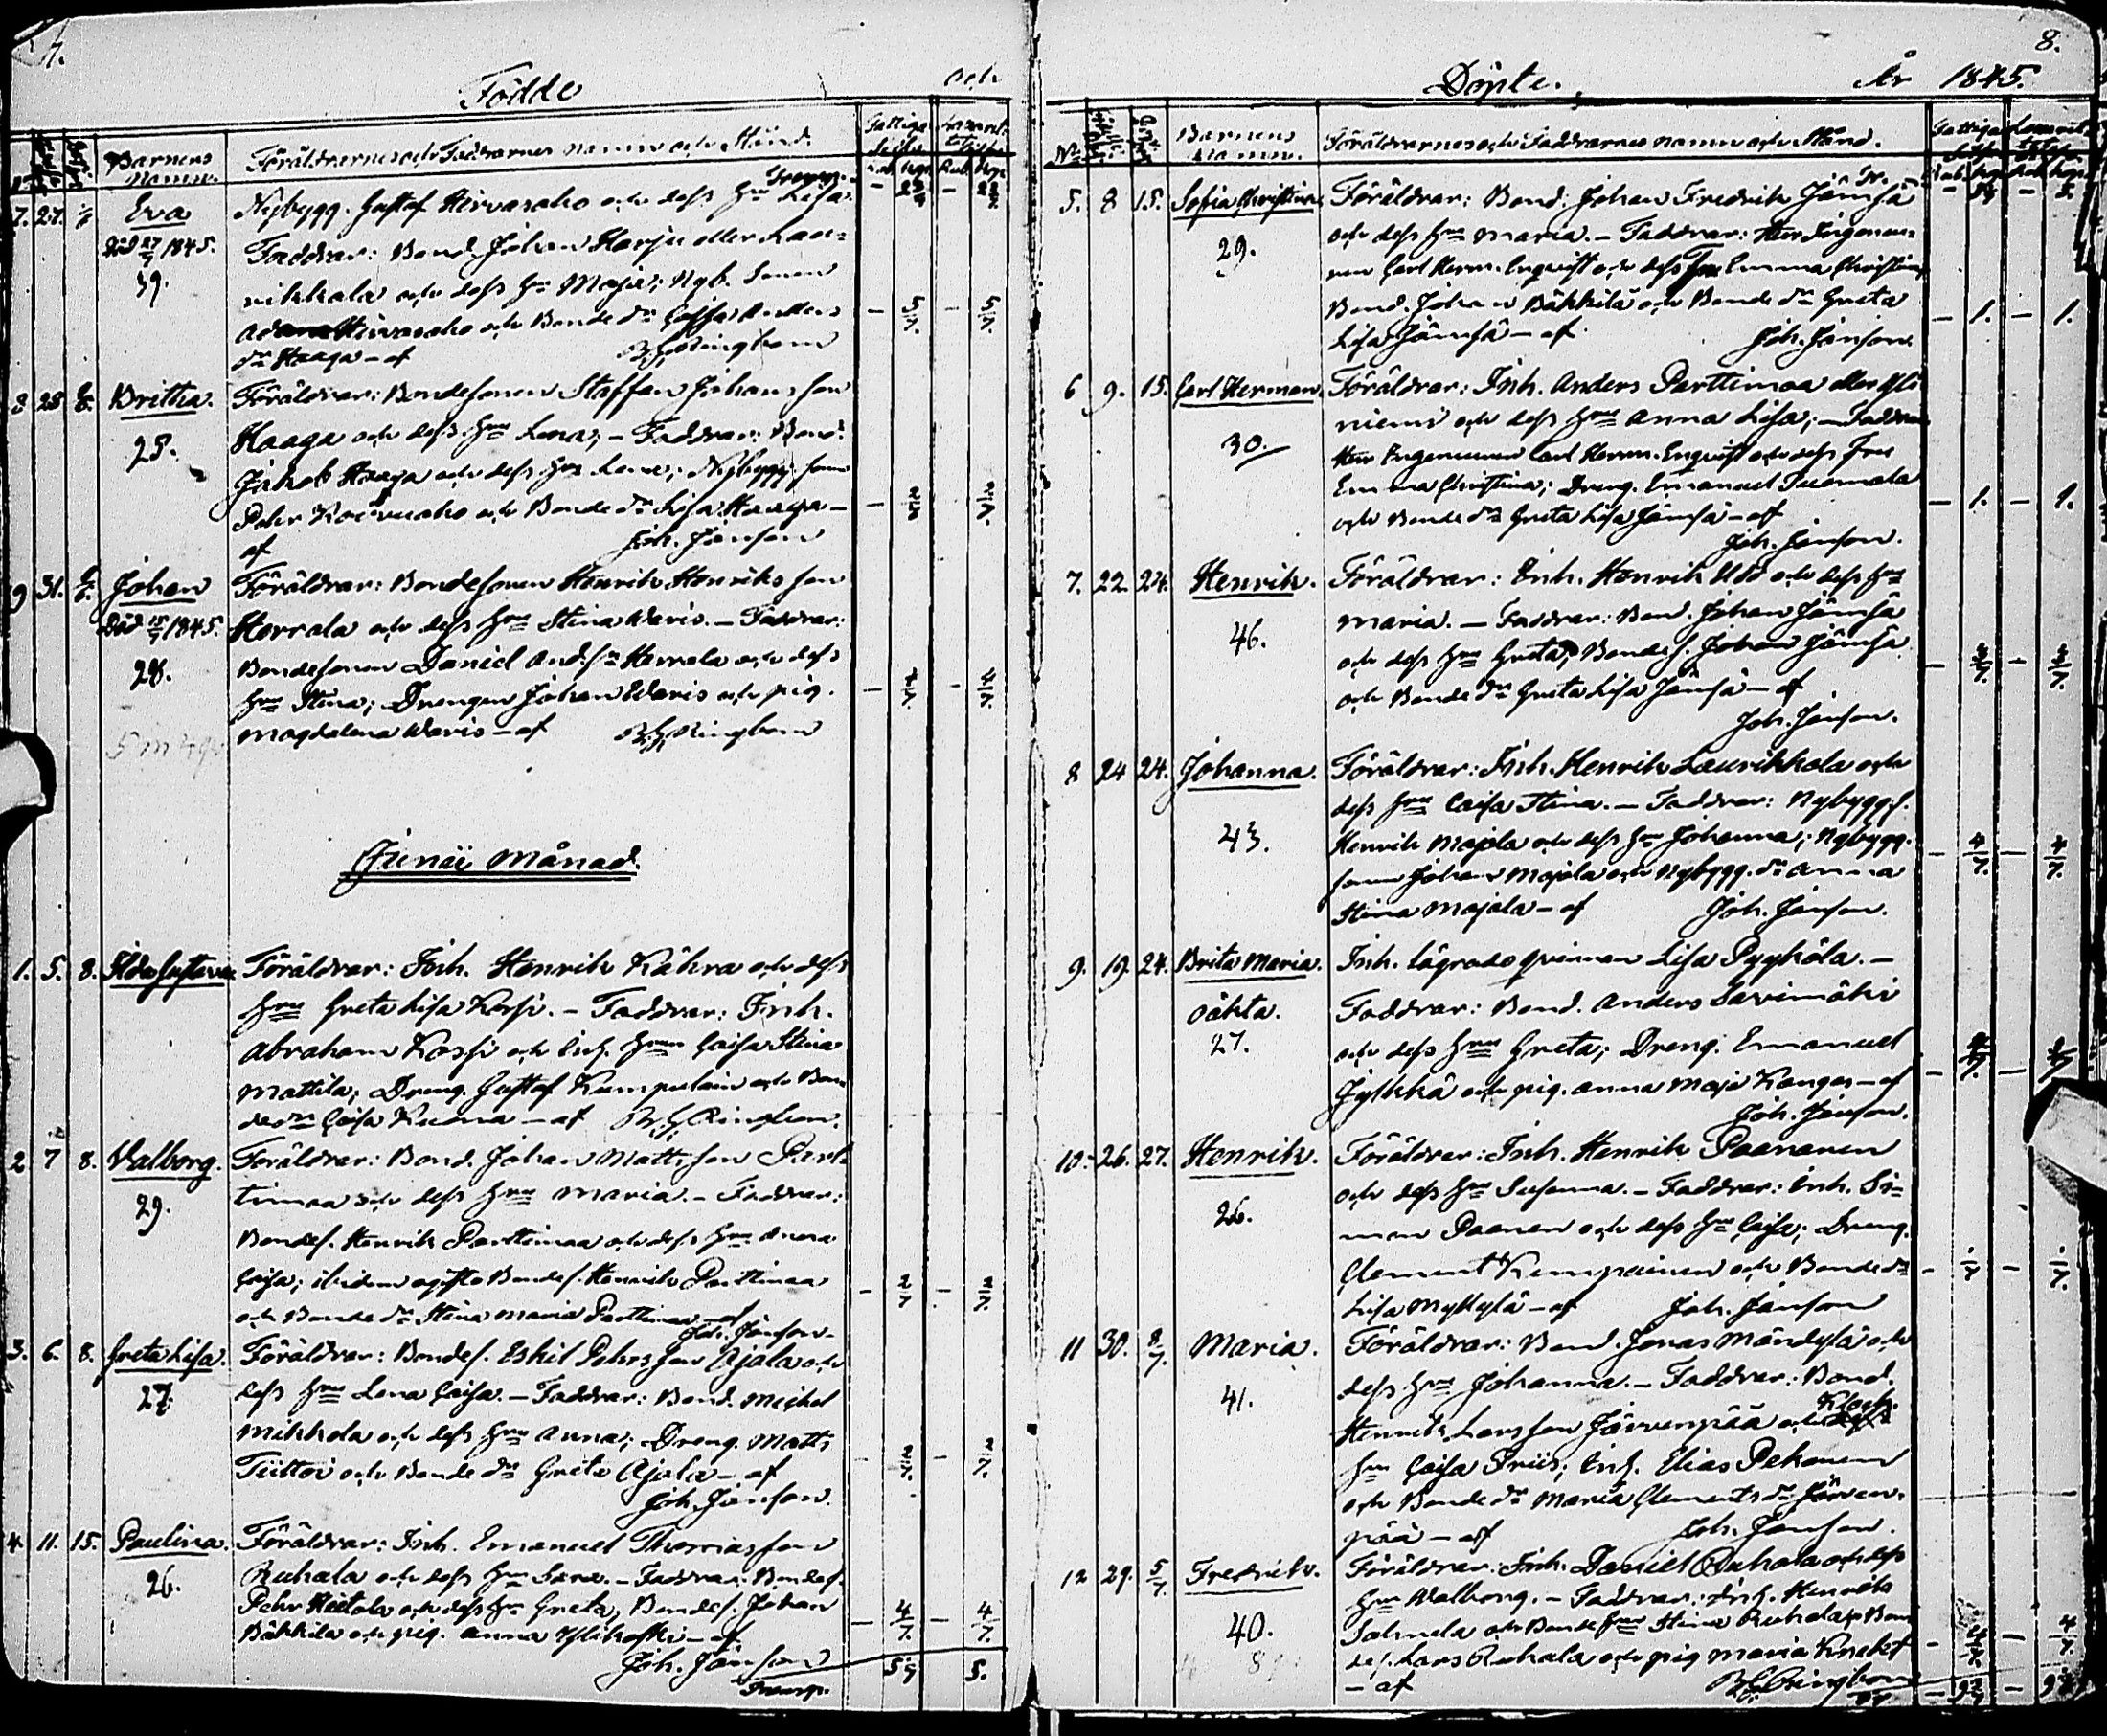 7.
Födde och
Barnens Namn. Föräldrarnes och Faddrarnes namn och Stånd. Fattiga Lazarett
Transp.
7. 27. Eva Nybygg. Gustaf Hirvasaho och dess Hu Lisa.
Död 27/7 1845. Faddrar: Bond. Johan Harju eller Lau-
39. rikkala och dess Hu Maja; Nyb. Sonen
Hirvasaho och Bonde dr Caisa Anders
dr Haaga – af Ringbom
8 25 Britta. Föräldrar: Bondesonen Staffan Johansson
25. Haaga och dess Hru Lena; – Faddrar: Bond.
Jakob Haaga och dess Hru Lena; Nybygg. son
Pehr Koivuaho och Bonde dr Lisa Haaga –
af Joh. Jánson
9 31. Johan Föräldrar: Bondesonen Henrik Henriksson
Död 15/7 1845. Herrala och dess Hru Stina Waris. – Faddrar:
28. Bondesonen Daniel Andsn Herrala och dess
Hru Stina; Drengen Johan Waris och pig.
Magdalena Waris – af Ringbom
Junii Månad.
1. 5. 8. Ilda Gustava Föräldrar: Inh. Henrik Kähra och dess
Hru Greta Lisa Kossi. – Faddrar: Inh.
Abraham Kossi och Caisa Stina
Mattila; Dreng. Gustaf Kumpulain och Bon-
dedr Caisa Kuona – af Ringbom.
2 7 8. Valborg. Föräldrar: Bond. Johan Mattsson Part-
29. timaa och dess Hru Maria. – Faddrar:
Bondes. Henrik Parttimaa och dess Hru Anna
Caisa; ibidem ogifte Bondes. Henrik Parttimaa
och Bonde dr Stina Maria Parttimaa – af
Joh. Jánson.
3. 6. 8. Greta Lisa. Föräldrar: Bondes. Eskil Pehrsson Ajala och
27. dess Hru Lena Caisa. – Faddrar: Bond. Michel
Mikkola och dess Hru Anna; Dreng. Matts
Tiittoi och Bonde dr Greta Ajala – af
Joh. Jánson.
4. 11. 15. Paulina. Föräldrar: Inh. Emanuel Thomasson
26. Ruhala och dess Hru Sara. – Faddrar: Bondes.
Pehr Hietala och dess Hu Greta; Bondes. Johan
Bäkkilä och pig. Anna Ylikoski – af 4/7. – 4/7.
Joh. Jánson
Transp. 5 5.
8.
Döpte. År 1845.
No Barnens Namn. Föräldrarnes och Faddrarnes namn och Stånd. Fattiga Lazarett
5. 8 15. Sofia Christina. Föräldrar: Bond. Johan Fredrik Jämsä
29. och dess Hru Maria. – Faddrar: Herr Ingeneu-
ren Carl Herm. Enqvist och dess Fru Emma Christina,
Bond. Johan Bäkkilä och Bonde dr Greta – 1. – 1.
Lisa Jämsä – af Joh. Jánson.
6 9. 15. Carl Herman. Föräldrar: Inh. Anders Parttimaa eller Yli
30. niemi och dess Hru Anna Lisa; – Faddrar
Herr Ingeneuren Carl Herm. Enqvist och dess Fru
Emma Christina; Dreng. Emanuel Tuomala – 1. – 1.
och Bonde dr Greta Lisa Jämsä – af
Joh. Jánson.
7. 22. 24. Henrik. Föräldrar: Inh. Henrik och dess Hru
46. Maria. – Faddrar: Bond. Johan Jämsä
och dess Hru Greta; Bondes. Johan Jämsä
och Bonde dr Greta Lisa Jämsä – af
Joh. Jánson.
8 24 24. Johanna. Föräldrar: Inh. Henrik Laurikkala och
43. dess Hru Caisa Stina. – Faddrar: Nybyggs.
Henrik Majala och dess Hu Johanna; Nybygg-
sonen Johan Majala och Nybygg. dr Anna – 4/7. – 4/7.
Stina Majala – af Joh. Jánson.
9. 19. 24. Brita Maria. Inh. lägrade qvinnan Lisa Pyyhälä. –
oäkta. Faddrar: Bond. Anders Savimäki
27. och dess Hru Greta; Dreng. Emanuel
Jylkkä och pig. Anna Maja Kangas – af
Joh. Jánson.
10. 26. 27. Henrik. Föräldrar: Inh. Henrik Paananen
26. och dess Hu Susanna. – Faddrar: Inh. Si-
mon Paananen och dess Hu Caisa; Dreng.
Clement Kemppainen och Bonde dr
Lisa Myllylä – af Joh. Jánson
11 30. 8/7. Maria. Föräldrar: Bond. Jonas Mändylä och
41. dess Hru Johanna. – Faddrar: Bond.
Henrik Larsson Järvenpää och Klock.
Hru Caisa Elias Pekonen
och Bonde dr Maria Clements dr Järven-
pää – af Joh. Jánson.
12 29. 5/7. Fredrik. Föräldrar: Inh. Daniel Ruhala och dess
40. Hru Walborg. – Faddrar: Henrik
Salmela och Bonde Stina Ruhala; Bon-
des. Lars Ruhala och pig Maria Knekt – 4/7.
– af Ringbom